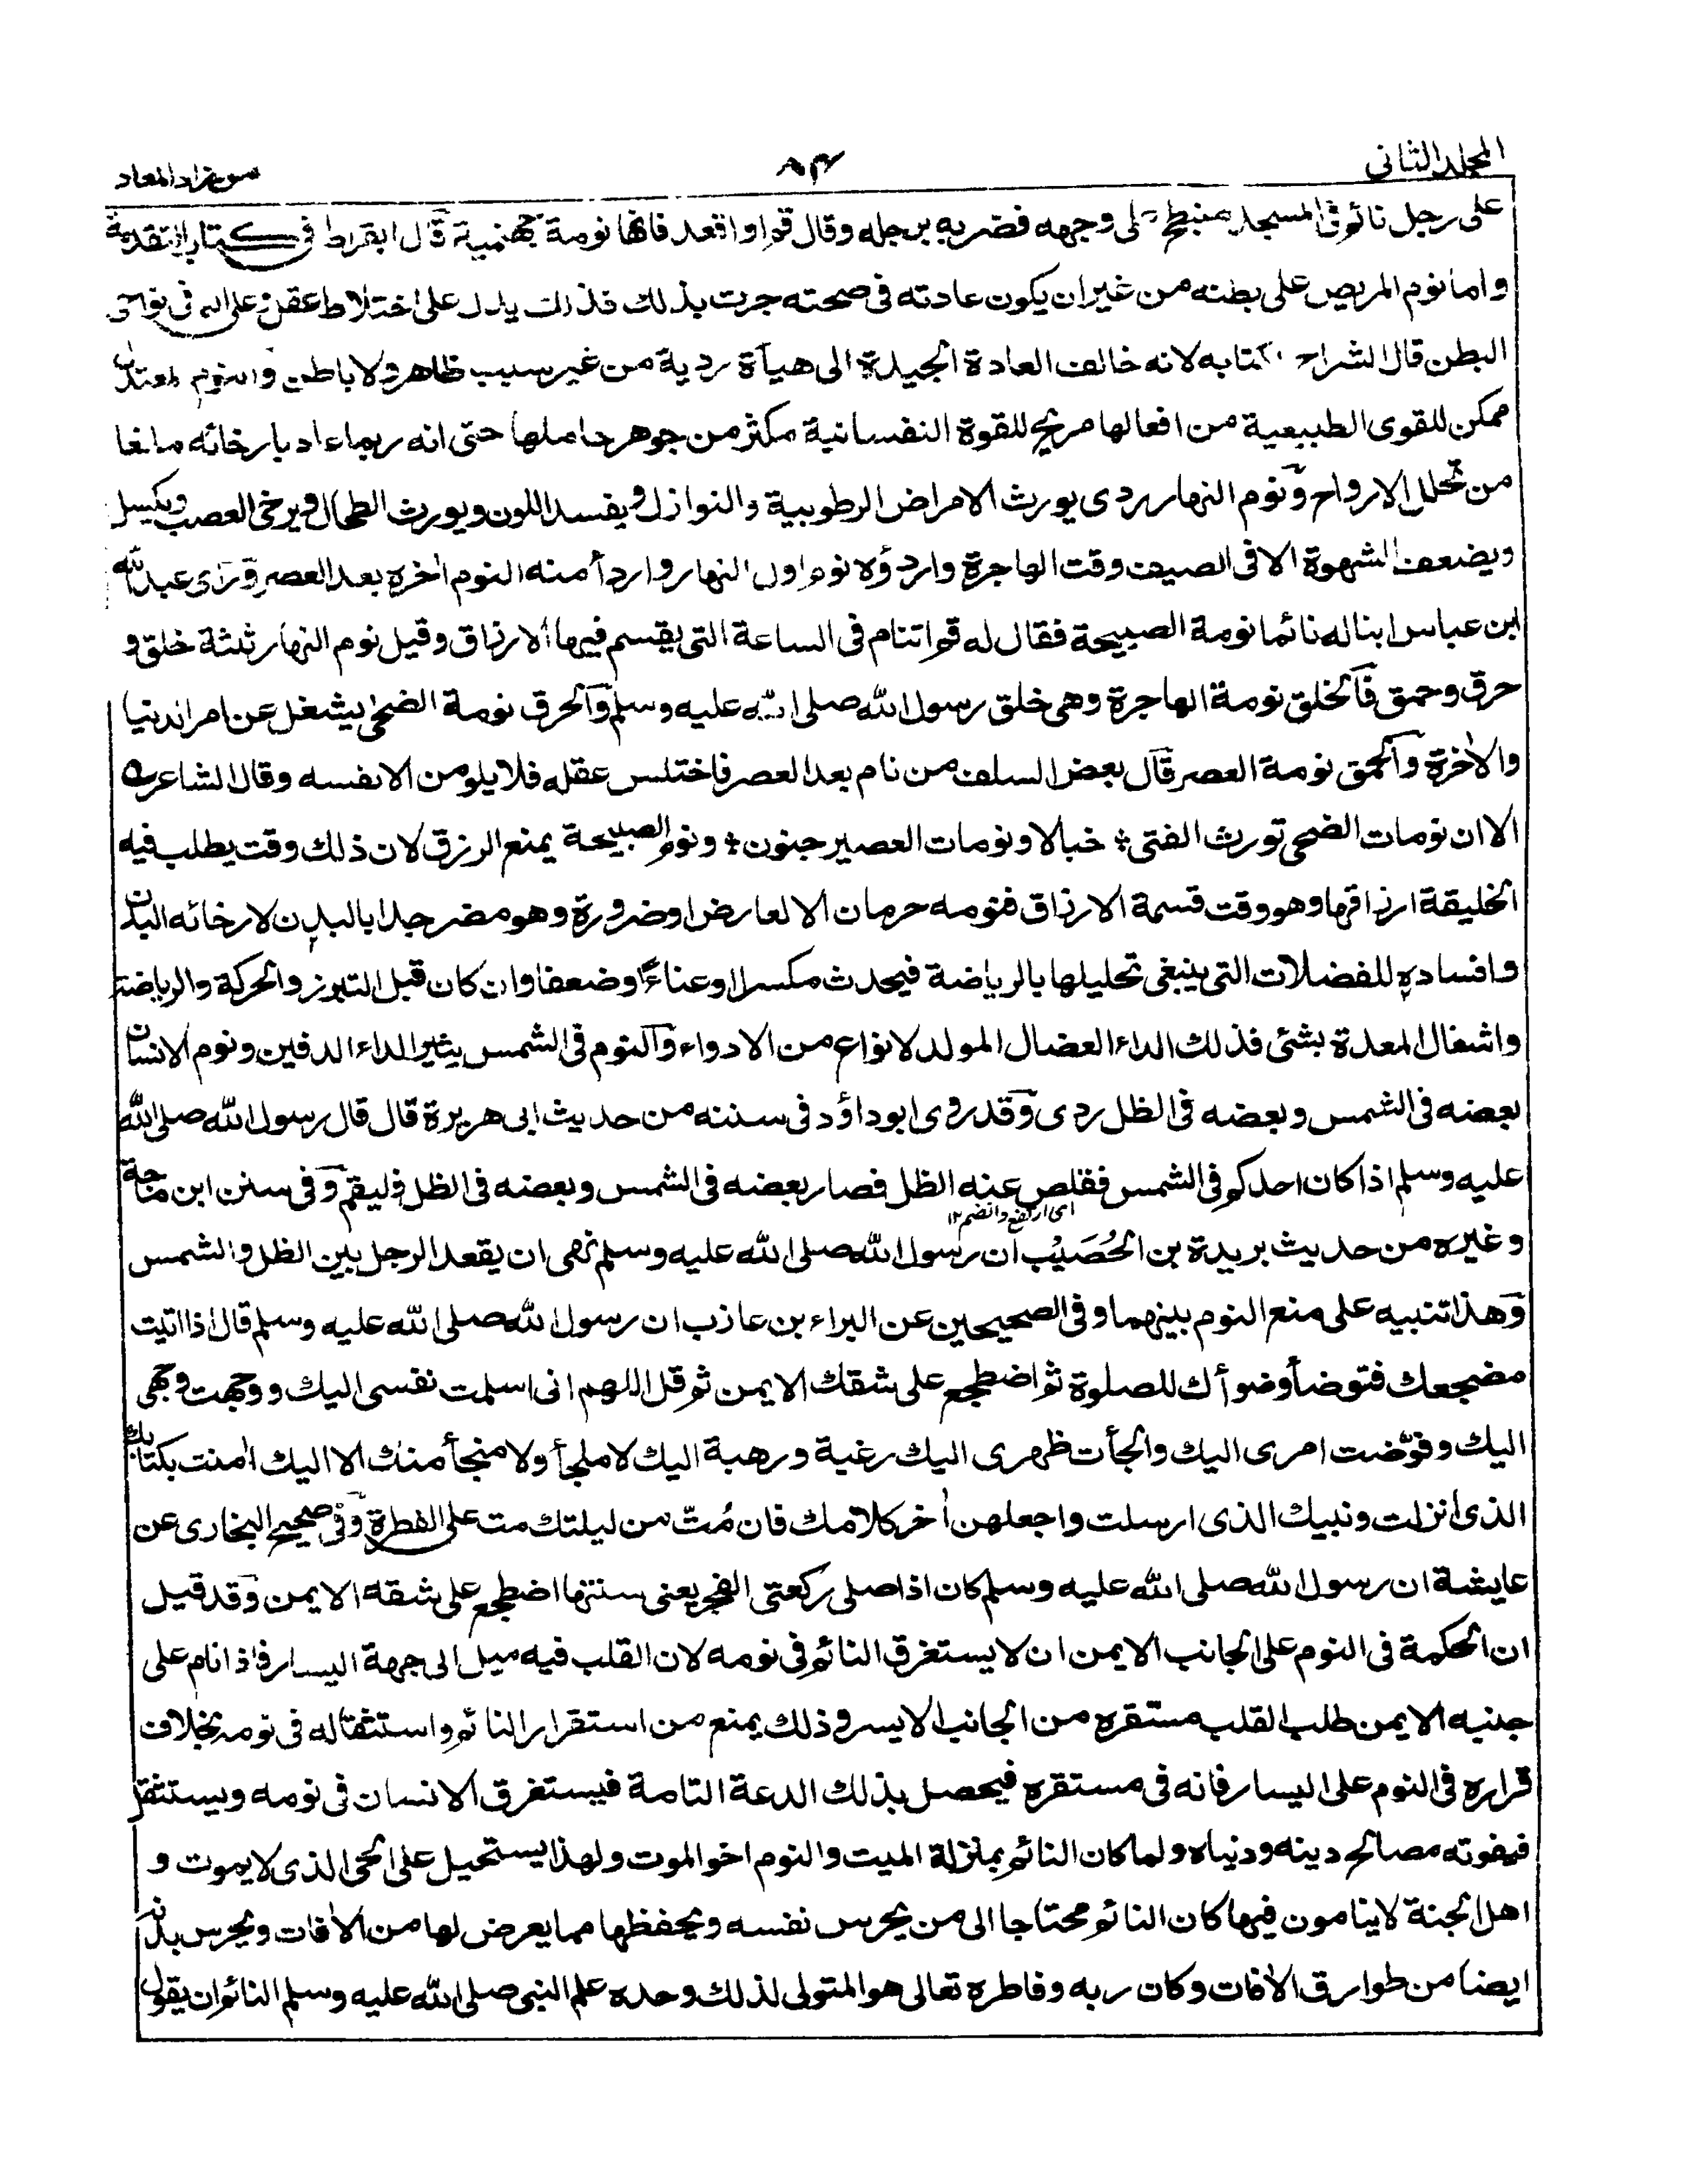 المجلد الثانی
٨٣
من زاد المعاد
علی رجل نائم فی المسجد منبطح علی وجهه فضربه برجله وقال قم او اقعد فانها نومة جهنمية قال ابقراط فی کتاب التقدمة
واما نوم المریض علی بطنه من غیران یکون عادته فی صحته جرت بذلك فذلك یدل علی اختلاط عقل وعلی الم فی نواحی
البطن قال الشراح لکتابه لانه خالف العادة الجیدة الی هیأة ردیة من غیر سبب ظاهر ولا باطن والنوم المعتدل
ممکن للقوی الطبیعیة من افعالها مریح للقوة النفسانیة مکثر من جوهر حاملها حتی انه ربما عاد بارخائه مانعا
من تحلل الارواح ونوم النهار ردی یورث الامراض الرطوبیة والنوازل ویفسد اللون ویورث الطحال ویرخی العصب ویکسل
ویضعف الشهوة الا فی الصیف وقت الهاجرة واردؤه نوم اول النهار واردأ منه النوم اخره بعد العصر ورای عبد الله
ابن عباس ابنا له نائما نومة الصبیحة فقال له قم اتنام فی الساعة التی یقسم فیها الارزاق وقیل نوم النهار ثلثة خلق و
حرق وحمق فالخلق نومة الهاجرة وهی خلق رسول الله صلی الله علیه وسلم والحرق نومة الضحی یشغل عن امر الدنیا
والاخرة والحمق نومة العصر قال بعض السلف من نام بعد العصر فاختلس عقله فلا یلومن الا نفسه وقال الشاعر ے
الا ان نومات الضحی تورث الفتی ÷ خبالا ونومات العصیر جنون ÷ ونوم الصبیحة یمنع الرزق لان ذلك وقت یطلب فیه
الخلیقة ارزاقها وهو وقت قسمة الارزاق فنومه حرمان الا لعارض او ضرورة وهو مضر جدا بالبدن لارخائه البدن
وافساده للفضلات التی ینبغی تحلیلها بالریاضة فیحدث مکسرا وعناءً وضعفا وان کان قبل التبرز والحرکة والریاضة
واشغال المعدة بشئ فذلك الداء العضال المولد لانواع من الادواء والنوم فی الشمس یثیر الداء الدفین ونوم الانسان
بعضه فی الشمس وبعضه فی الظل ردی وقد روی ابو داؤد فی سننه من حدیث ابی هریرة قال قال رسول الله صلی الله
علیه وسلم اذا کان احدکم فی الشمس فقلص عنه الظل فصار بعضه فی الشمس وبعضه فی الظل فلیقم وفی سنن ابن ماجة
ای ارتفع وانضم ١٢
وغیره من حدیث بریدة بن الحُصَیْب ان رسول الله صلی الله علیه وسلم نهی ان یقعد الرجل بین الظل والشمس
وهذا تنبیه علی منع النوم بینهما وفی الصحیحین عن البراء بن عازب ان رسول الله صلی الله علیه وسلم قال اذا اتیت
مضجعك فتوضأ وضوأك للصلوة ثم اضطجع علی شقك الایمن ثم قل اللهم انی اسلمت نفسی الیك ووجهت وجهی
الیك وفوّضت امری الیك والجأت ظهری الیك رغبة ورهبة الیك لا ملجأ ولا منجأ منك الا الیك امنت بکتابك
الذی انزلت ونبیك الذی ارسلت واجعلهن اخر کلامك فان مُتّ من لیلتك مت علی الفطرة وفی صحیح البخاری عن
عایشة ان رسول الله صلی الله علیه وسلم کان اذا صلی رکعتی الفجر یعنی سنتها اضطجع علی شقه الایمن وقد قیل
ان الحکمة فی النوم علی الجانب الایمن ان لا یستغرق النائم فی نومه لان القلب فیه میل الی جهة الیسار فاذا نام علی
جنبه الایمن طلب القلب مستقره من الجانب الایسر وذلك یمنع من استقرار النائم واستثقاله فی نومه بخلاف
قراره فی النوم علی الیسار فانه فی مستقره فیحصل بذلك الدعة التامة فیستغرق الانسان فی نومه ویستثقل
فیفوته مصالح دینه ودنیاه ولما کان النائم بمنزلة المیت والنوم اخو الموت ولهذا یستحیل علی الحی الذی لا یموت و
اهل الجنة لا ینامون فیها کان النائم محتاجا الی من یحرس نفسه ویحفظها مما یعرض لها من الافات ویحرس بدنه
ایضا من طوارق الافات وکان ربه وفاطره تعالی هو المتولی لذلك وحده علم النبی صلی الله علیه وسلم النائم ان یقول